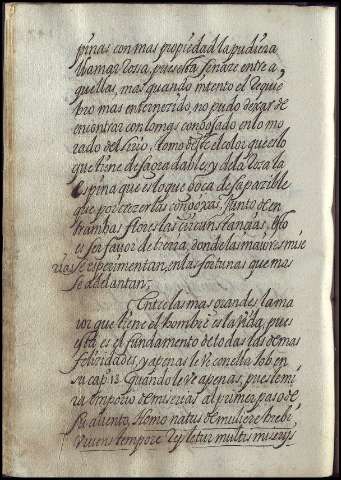 pinas con mas propiedad la pudiera
llamar Rosa, pues esta se naze entre a
quellas, mas quando intento el Requie
bro mas enternezido, no pudo dexar de
encontrar con lo mas en lo mo
rado del lirio, tiene el color que es lo
que tiene de la Rosa la
espina que es lo que goza de desapazible
que por crezer las congoxas, junto de en
trambas flores las circunstancias, esto
es ser favor de tierra, donde las maiores mise
rias se esperimentan, en las fortunas que mas
se adelantan;
Entre las mas grandes la ma
ior que tiene el hombre es la vida, pues
esta es el fundamento de todas las demas
felicidades, y apenas le ve con ella Job en
su cap. 13. quando le ve apenas, pues le mi
ra emporio de miserias al primer paso de
su aliento, Homo natus de muliere brebi
vivens tempore repletur multis miserijs